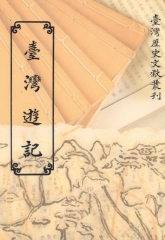 臺灣歷史文獻叢刊
臺灣遊記